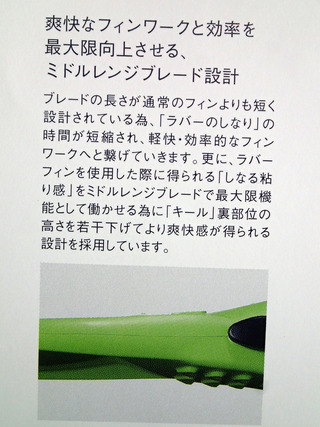 爽快なフィンワークと効率を
最大限向上させる、
ミドルレンジブレード設計
ブレードの長さが通常のフィンよりも短く
設計されている為、「ラバーのしなり」の
時間が短縮され、軽快・効率的なフィン
ワークへと繋げていきます。更に、ラバー
フィンを使用した際に得られる「しなる粘
り感」をミドルレンジブレードで最大限機
能として働かせる為に「キール」裏部位の
高さを若干下げてより爽快感が得られる
設計を採用しています。